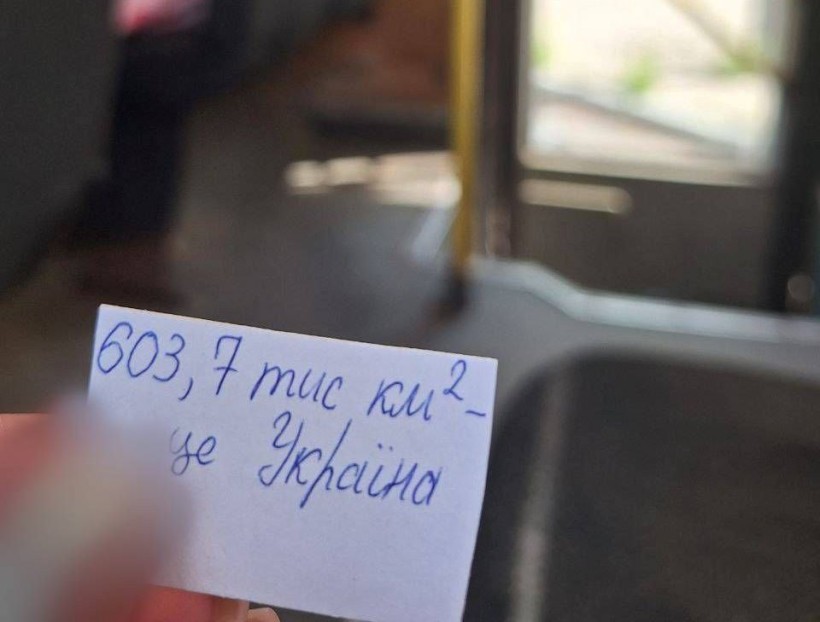 603,7 тис км² -
це Україна